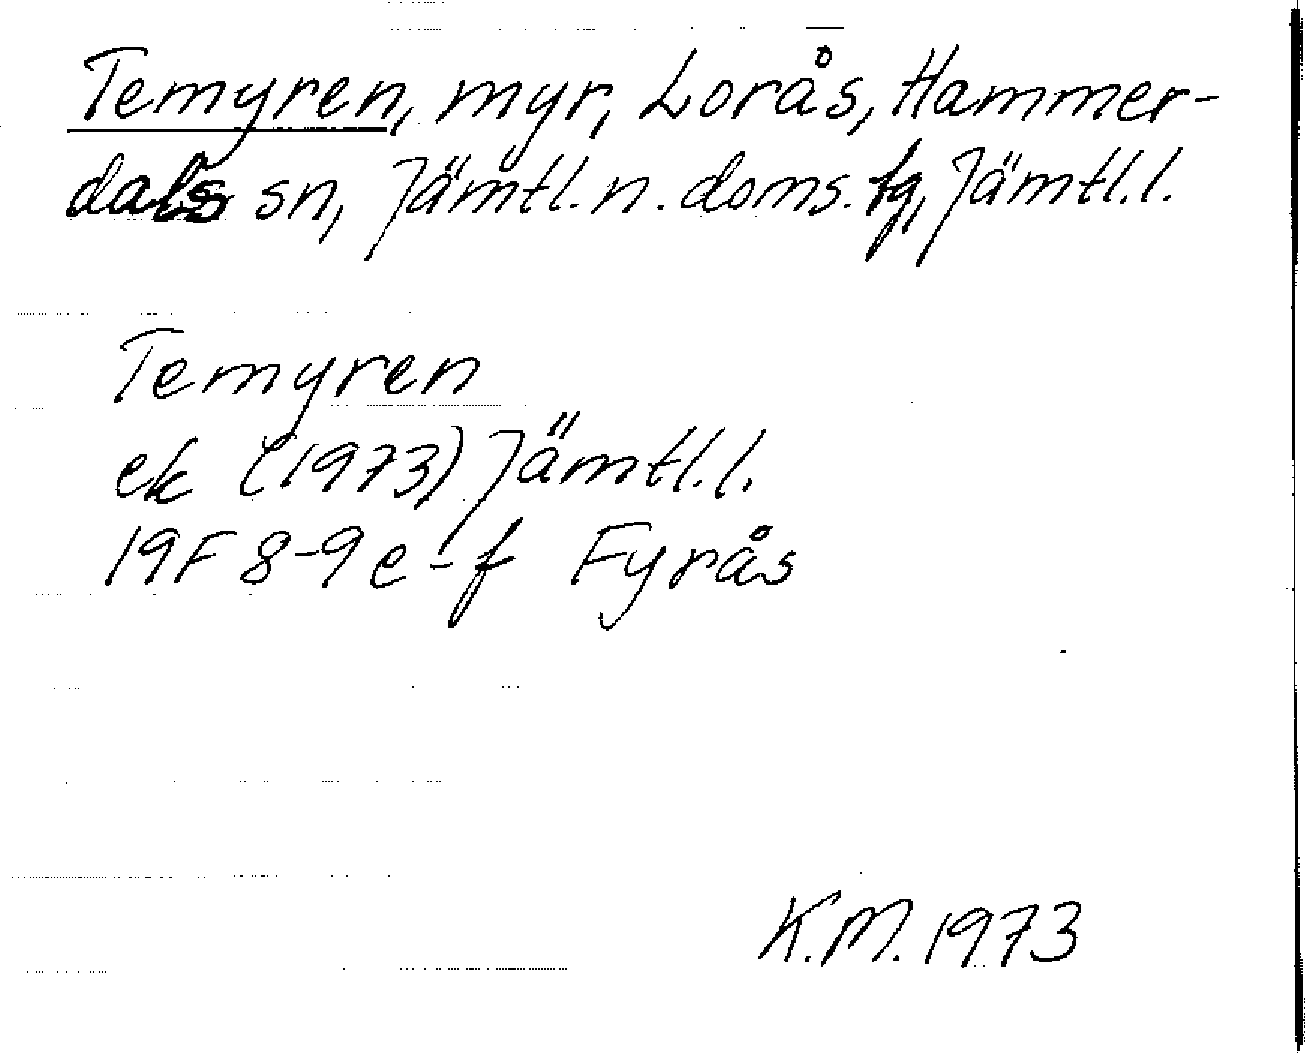 Temyren, myr, Lorås, Hammer-
dals sn, Jämtl. n. doms. fg, Jämtl. l.
Temyren
ek (1973) Jämtl. l.
19F 8-9 e-f Fyrås
K.M. 1973